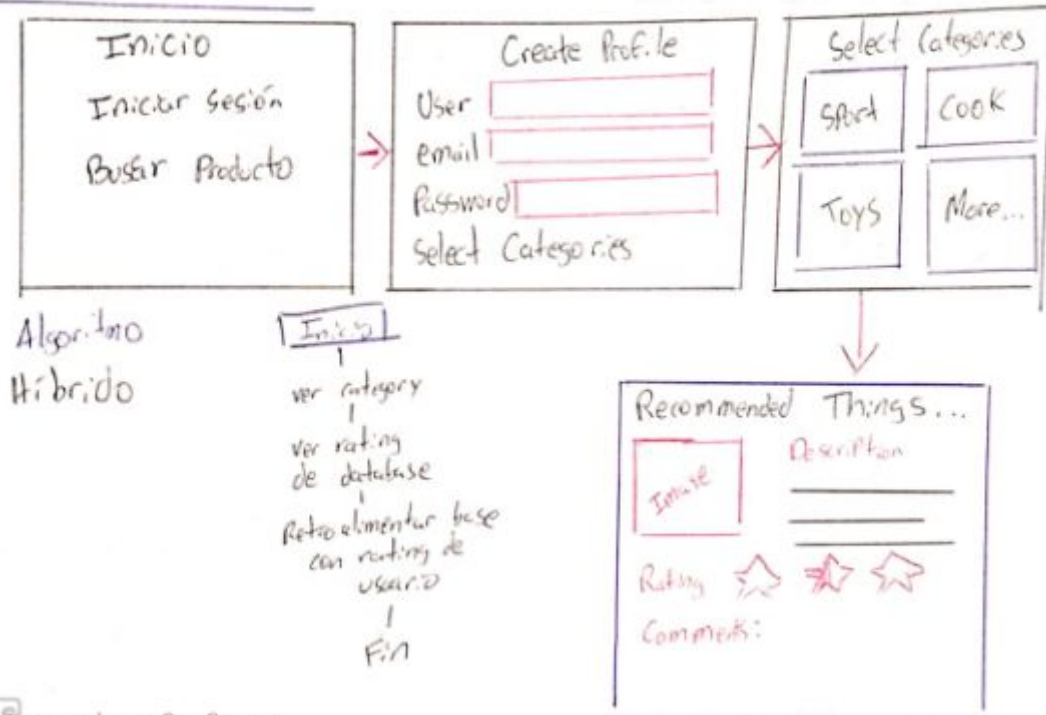 Inicio
Iniciar Sesión
Buscar Producto
Create Profile
User
email
Password
Select Categories
Select Categories
Sport
Cook
Toys
More...
Algoritmo
Híbrido
Inicio
ver category
ver rating
de database
Retroalimentar base
con rating de
usuario
Fin
Recommended Things...
Image
Description
Rating
Comments: